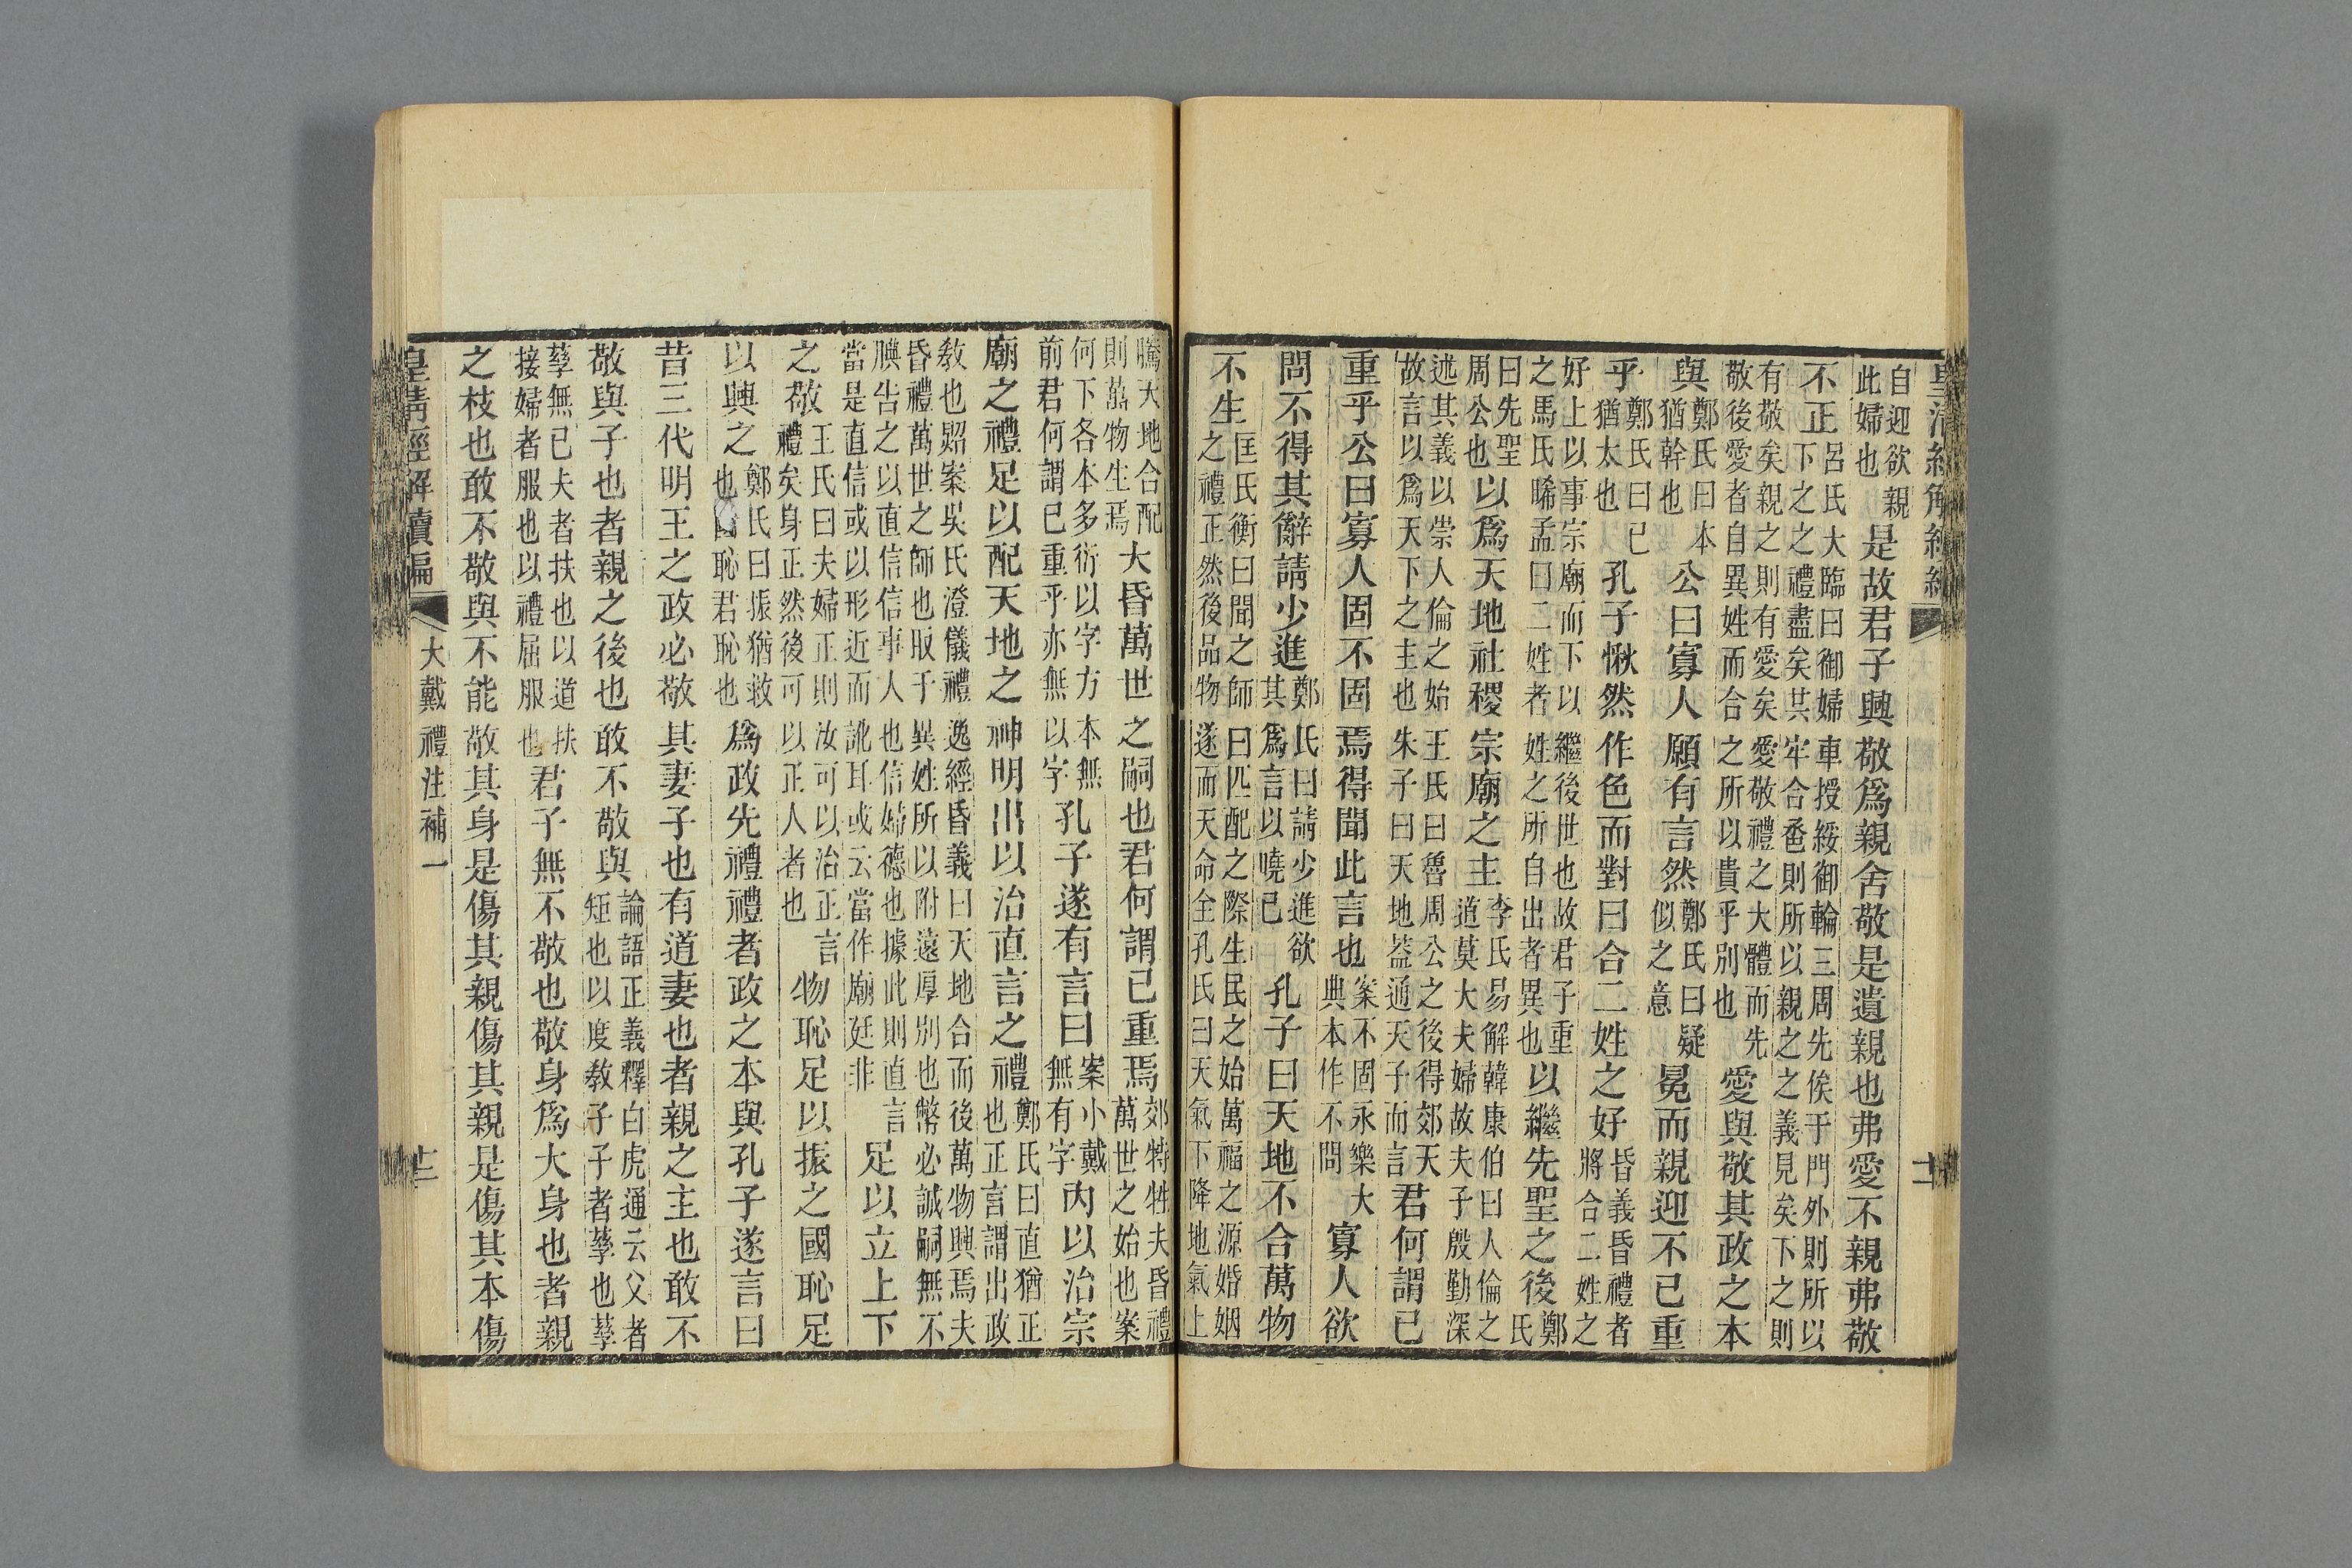 皇清經解續編 十一
自迎欲親此婦也是故君子興敬爲親舍敬是遺親也弗愛不親弗敬
不正呂氏大臨曰御婦車授綏御輪三周先俟于門外則所以下之之禮盡矣共牢合卺則所以親之之義見矣下之則
有敬矣親之則有愛矣愛敬禮之大體而先敬後愛者自異姓而合之所以貴乎別也愛與敬其政之本
與鄭氏曰本猶幹也公曰寡人願有言然鄭氏曰疑似之意冕而親迎不已重
乎鄭氏曰已猶太也孔子愀然作色而對曰合二姓之好昏義昏禮者將合二姓之
好上以事宗廟而下以繼後世也故君子重之馬氏晞孟曰二姓者姓之所自出者異也以繼先聖之後鄭氏
曰先聖周公也以爲天地社稷宗廟之主李氏易解韓康伯曰人倫之道莫大夫婦故夫子殷勤深
述其義以崇人倫之始王氏曰魯周公之後得郊天故言以爲天下之主也朱子曰天地葢通天子而言君何謂已
重乎公曰寡人固不固焉得聞此言也案不固永樂大典本作不問寡人欲
問不得其辭請少進鄭氏曰請少進欲其爲言以曉己孔子曰天地不合萬物
不生匡氏衡曰聞之師曰匹配之際生民之始萬福之源婚姻之禮正然後品物遂而天命全孔氏曰天氣下降地氣上
騰天地合配則萬物生焉大昏萬世之嗣也君何謂已重焉郊特牲夫昏禮萬世之始也案
何下各本多衍以字方本無前君何謂已重乎亦無以字孔子遂有言曰案小戴無有字內以治宗
廟之禮足以配天地之神明出以治直言之禮鄭氏曰直猶正也正言謂出政
敎也䝼案吳氏澄儀禮逸經昏義曰天地合而後萬物興焉夫昏禮萬世之師也取于異姓所以附遠厚別也幣必誠嗣無不
腆告之以直信信事人也信婦德也據此則直言當是直信或以形近而訛耳或云當作廟廷非足以立上下
之敬王氏曰夫婦正則汝可以治正言禮矣身正然後可以正人者也物恥足以振之國恥足
以興之鄭氏曰振猶救也國恥君恥也爲政先禮禮者政之本與孔子遂言曰
昔三代明王之政必敬其妻子也有道妻也者親之主也敢不
敬與子也者親之後也敢不敬與論語正義釋白虎通云父者矩也以度敎子子者孳也孳
孳無已夫者扶也以道扶接婦者服也以禮屈服也君子無不敬也敬身爲大身也者親
之枝也敢不敬與不能敬其身是傷其親傷其親是傷其本傷
皇清經解續編 大戴禮注補一 十二